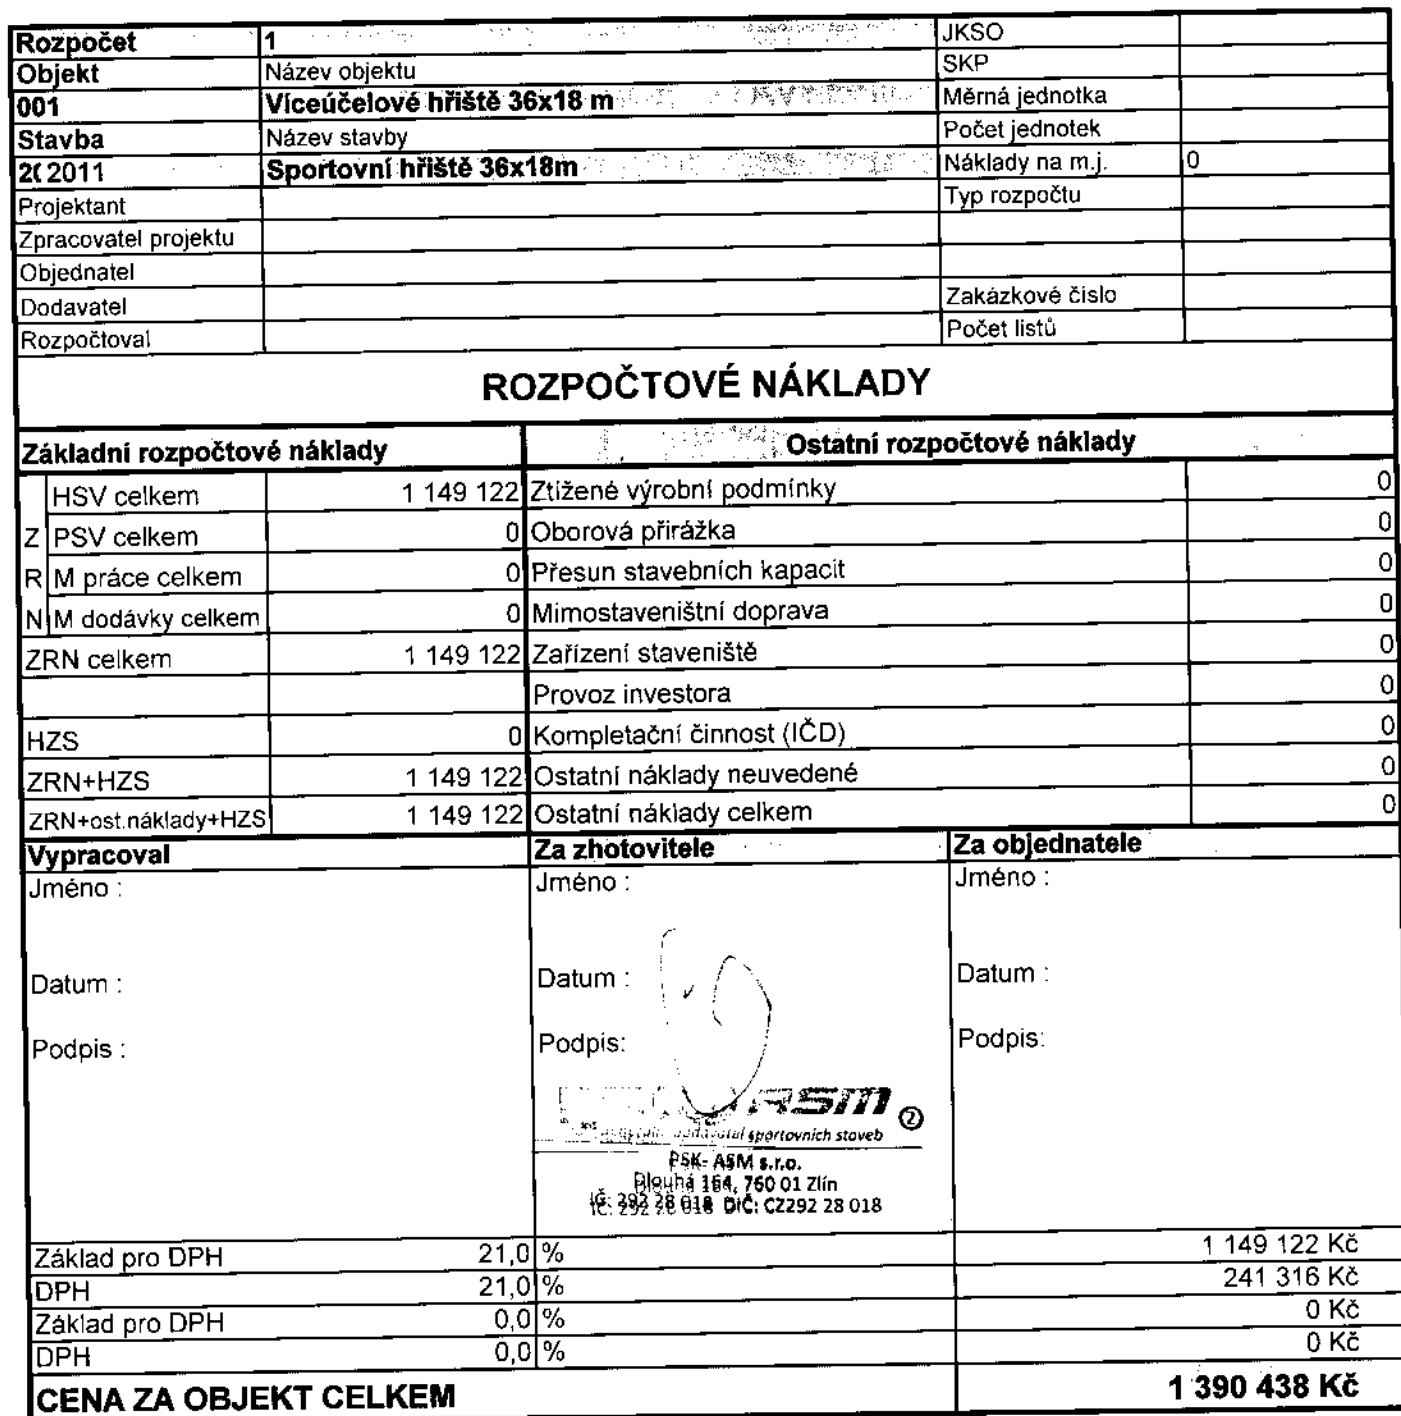 Rozpočet 1 JKSO
Objekt Název objektu SKP
001 Víceúčelové hřiště 36x18 m Měrná jednotka
Stavba Název stavby Počet jednotek
2011 Sportovní hřiště 36x18m Náklady na m.j. 0
Projektant Typ rozpočtu
Zpracovatel projektu
Objednatel
Dodavatel Zakázkové číslo
Rozpočtoval Počet listů
ROZPOČTOVÉ NÁKLADY
Základní rozpočtové náklady Ostatní rozpočtové náklady
HSV celkem 1 149 122 Ztížené výrobní podmínky 0
Z PSV celkem 0 Oborová přirážka 0
R M práce celkem 0 Přesun stavebních kapacit 0
N M dodávky celkem 0 Mimostaveništní doprava 0
ZRN celkem 1 149 122 Zařízení staveniště 0
Provoz investora 0
HZS 0 Kompletační činnost (IČD) 0
ZRN+HZS 1 149 122 Ostatní náklady neuvedené 0
ZRN+ost.náklady+HZS 1 149 122 Ostatní náklady celkem 0
Vypracoval Za zhotovitele Za objednatele
Jméno : Jméno : Jméno :
Datum : Datum : Datum :
Podpis : Podpis: Podpis:
②
sportovních staveb
PSK- ASM s.r.o.
Dlouhá 164, 760 01 Zlín
IČ: 292 28 018 DIČ: CZ292 28 018
Základ pro DPH 21,0 % 1 149 122 Kč
DPH 21,0 % 241 316 Kč
Základ pro DPH 0,0 % 0 Kč
DPH 0,0 % 0 Kč
CENA ZA OBJEKT CELKEM 1 390 438 Kč